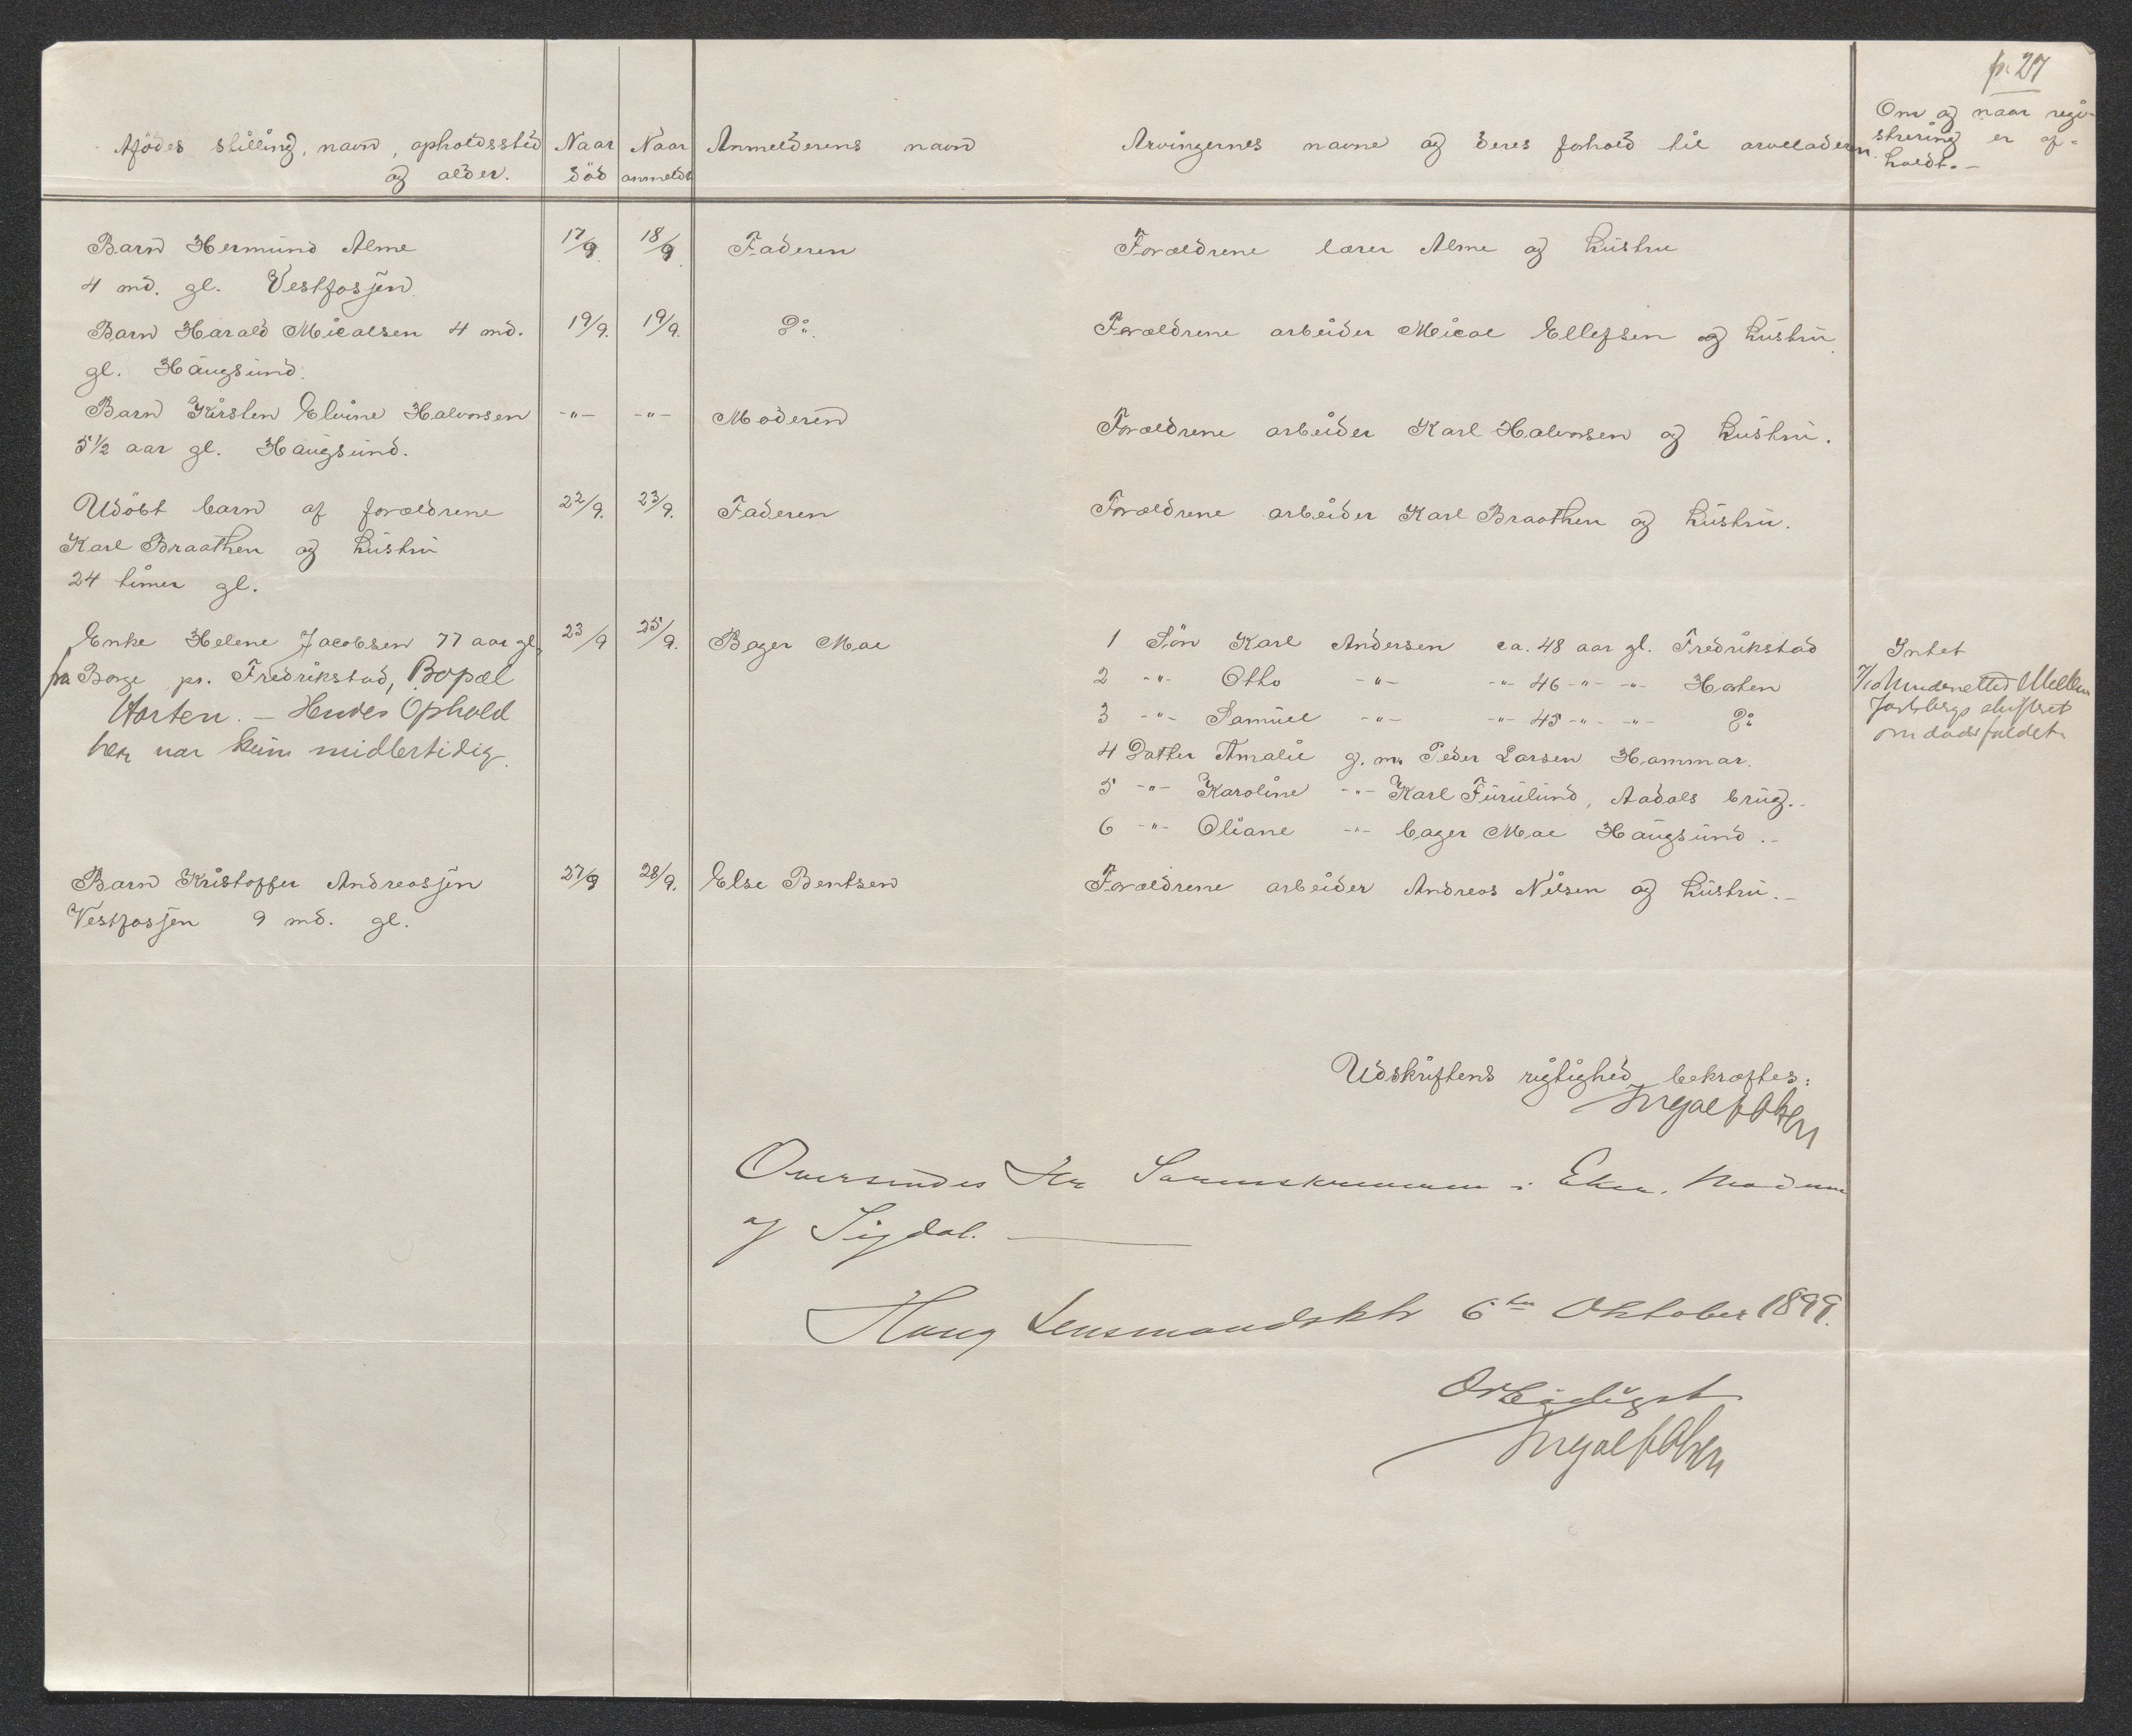 p. 27
Afdødes stilling, navn, opholdssted og alder.
Naar død
Naar anmeldt
Anmelderens navn
Arvingernes navne og deres forhold til arveladeren.
Om og naar registrering er afholdt.-
Barn Hermund Alme 17/9 18/9. Faderen Forældrene lærer Alme og hustru
4 md. gl. Vestfossen.
Barn Harald Micalsen 4 md. 19/9. 19/9. Do. Forældrene arbeider Mical Ellefsen og hustru.
gl. Haugsund.
Barn Kirsten Elvine Halvorsen -"- -"- Moderen Forældrene arbeider Karl Halvorsen og hustru.
5½ aar gl. Haugsund.
Udøbt barn af forældrene 22/9. 23/9. Faderen Forældrene arbeider Karl Braathen og hustru.
Karl Braathen og hustru
24 timer gl.
Enke Helene Jacobsen 77 aar gl, 23/9 25/9. Bager Mael 1 Søn Karl Andersen ca. 48 aar gl. Fredrikstad Intet
fra Borge pr. Fredrikstad, Bopæl 2 -"- Otto -"- -"- 46 -"- -"- Horten
Horten. - Hendes Ophold 3 -"- Samuel -"- -"- 45 -"- -"- Do
her var kun midlertidig. 4 Datter Amalie g. m. Peder Larsen Hammar.
7/10 underrettet
om dødsfaldet.
5 -"- Karoline -"- Karl Furulund, Aadals brug.-
6 -"- Oliane -"- bager Mael Haugsund.-
Barn Kristoffer Andreassen 27/9 28/9. Else Bentsen Forældrene arbeider Andreas Nilsen og hustru.-
Vestfossen 9 md. gl.
Udskriftens rigtighed bekræftes:
Oversendes Hr Sorenskriveren i Eker, Modum
og Sigdal.
Haug Lensmandsktr 6te Oktober 1899.
Ærbødigst